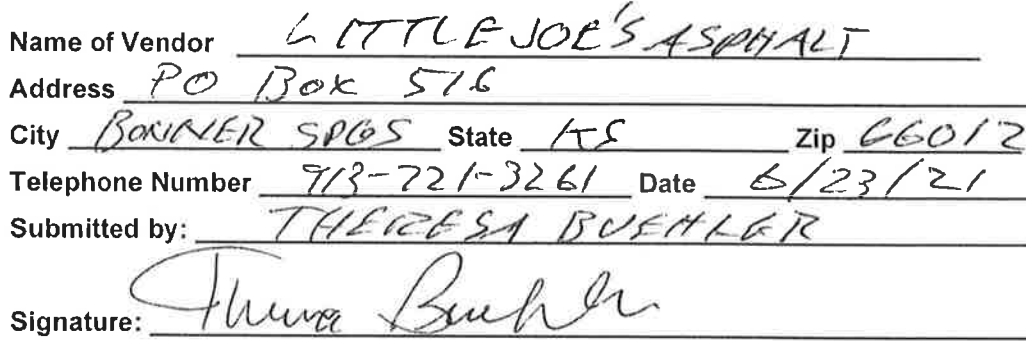 Name of Vendor LITTLE JOE'S ASPHALT
Address PO Box 516
City BONNER SPGS State KS Zip 66012
Telephone Number 913-721-3261 Date 6/23/21
Submitted by: THERESA BUEHLER
Signature: Theresa Buehler